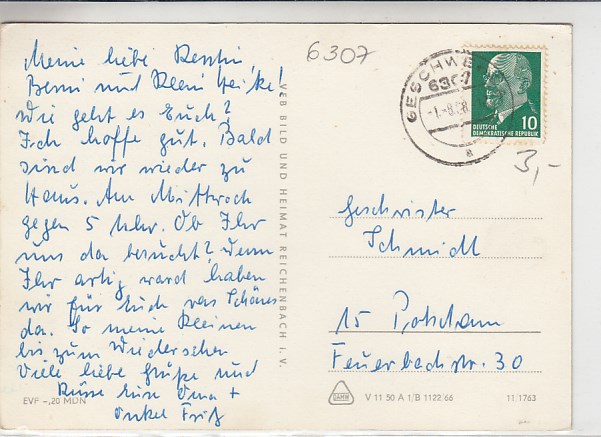 Meine liebe Kerstin,
Berni und Klein Heike!
Wie geht es Euch?
Ich hoffe gut. Bald
sind wir wieder zu
Haus. Am Mittwoch
gegen 5 Uhr. Ob Ihr
uns da besucht? Wenn
Ihr artig ward haben
wir für Euch was Schönes
da. So meine Kleinen
bis zum Wiedersehen
viele liebe Grüße und
Küsse Eure Oma +
Onkel Fritz
EVP -,20 MDN
VEB BILD UND HEIMAT REICHENBACH i. V.
6307
GESCHWE
6307
-1.-8.68
a
10
DEUTSCHE
DEMOKRATISCHE REPUBLIK
3,-
Geschwister
Schmidt
15 Potsdam
Feuerbachstr. 30
V 11 50 A 1/B 1122/66
11 1763